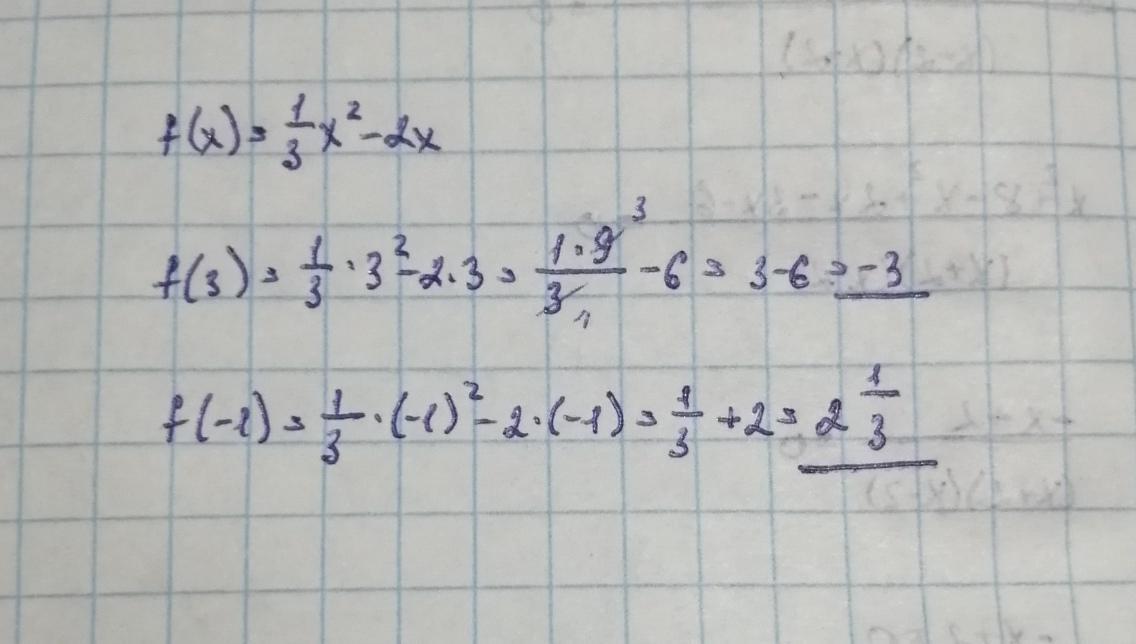 f(x) = 1/3 x² - 2x
f(3) = 1/3 · 3² - 2 · 3 = 1·9 3/3 1 - 6 = 3 - 6 = -3
f(-1) = 1/3 · (-1)² - 2 · (-1) = 1/3 + 2 = 2 1/3